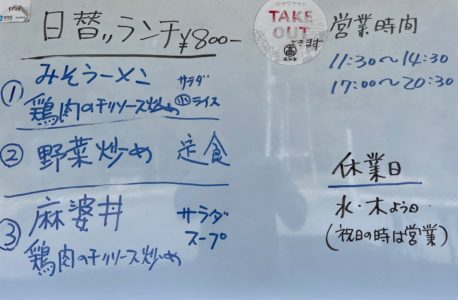 日替りランチ ¥800-
① みそラーメン サラダ
鶏肉のチリソース炒め 小ライス
② 野菜炒め 定食
③ 麻婆丼 サラダ
鶏肉のチリソース炒め スープ
TAKE
OUT
できます
営業時間
11:30〜14:30
17:00〜20:30
休業日
水・木よう日
(祝日の時は営業)